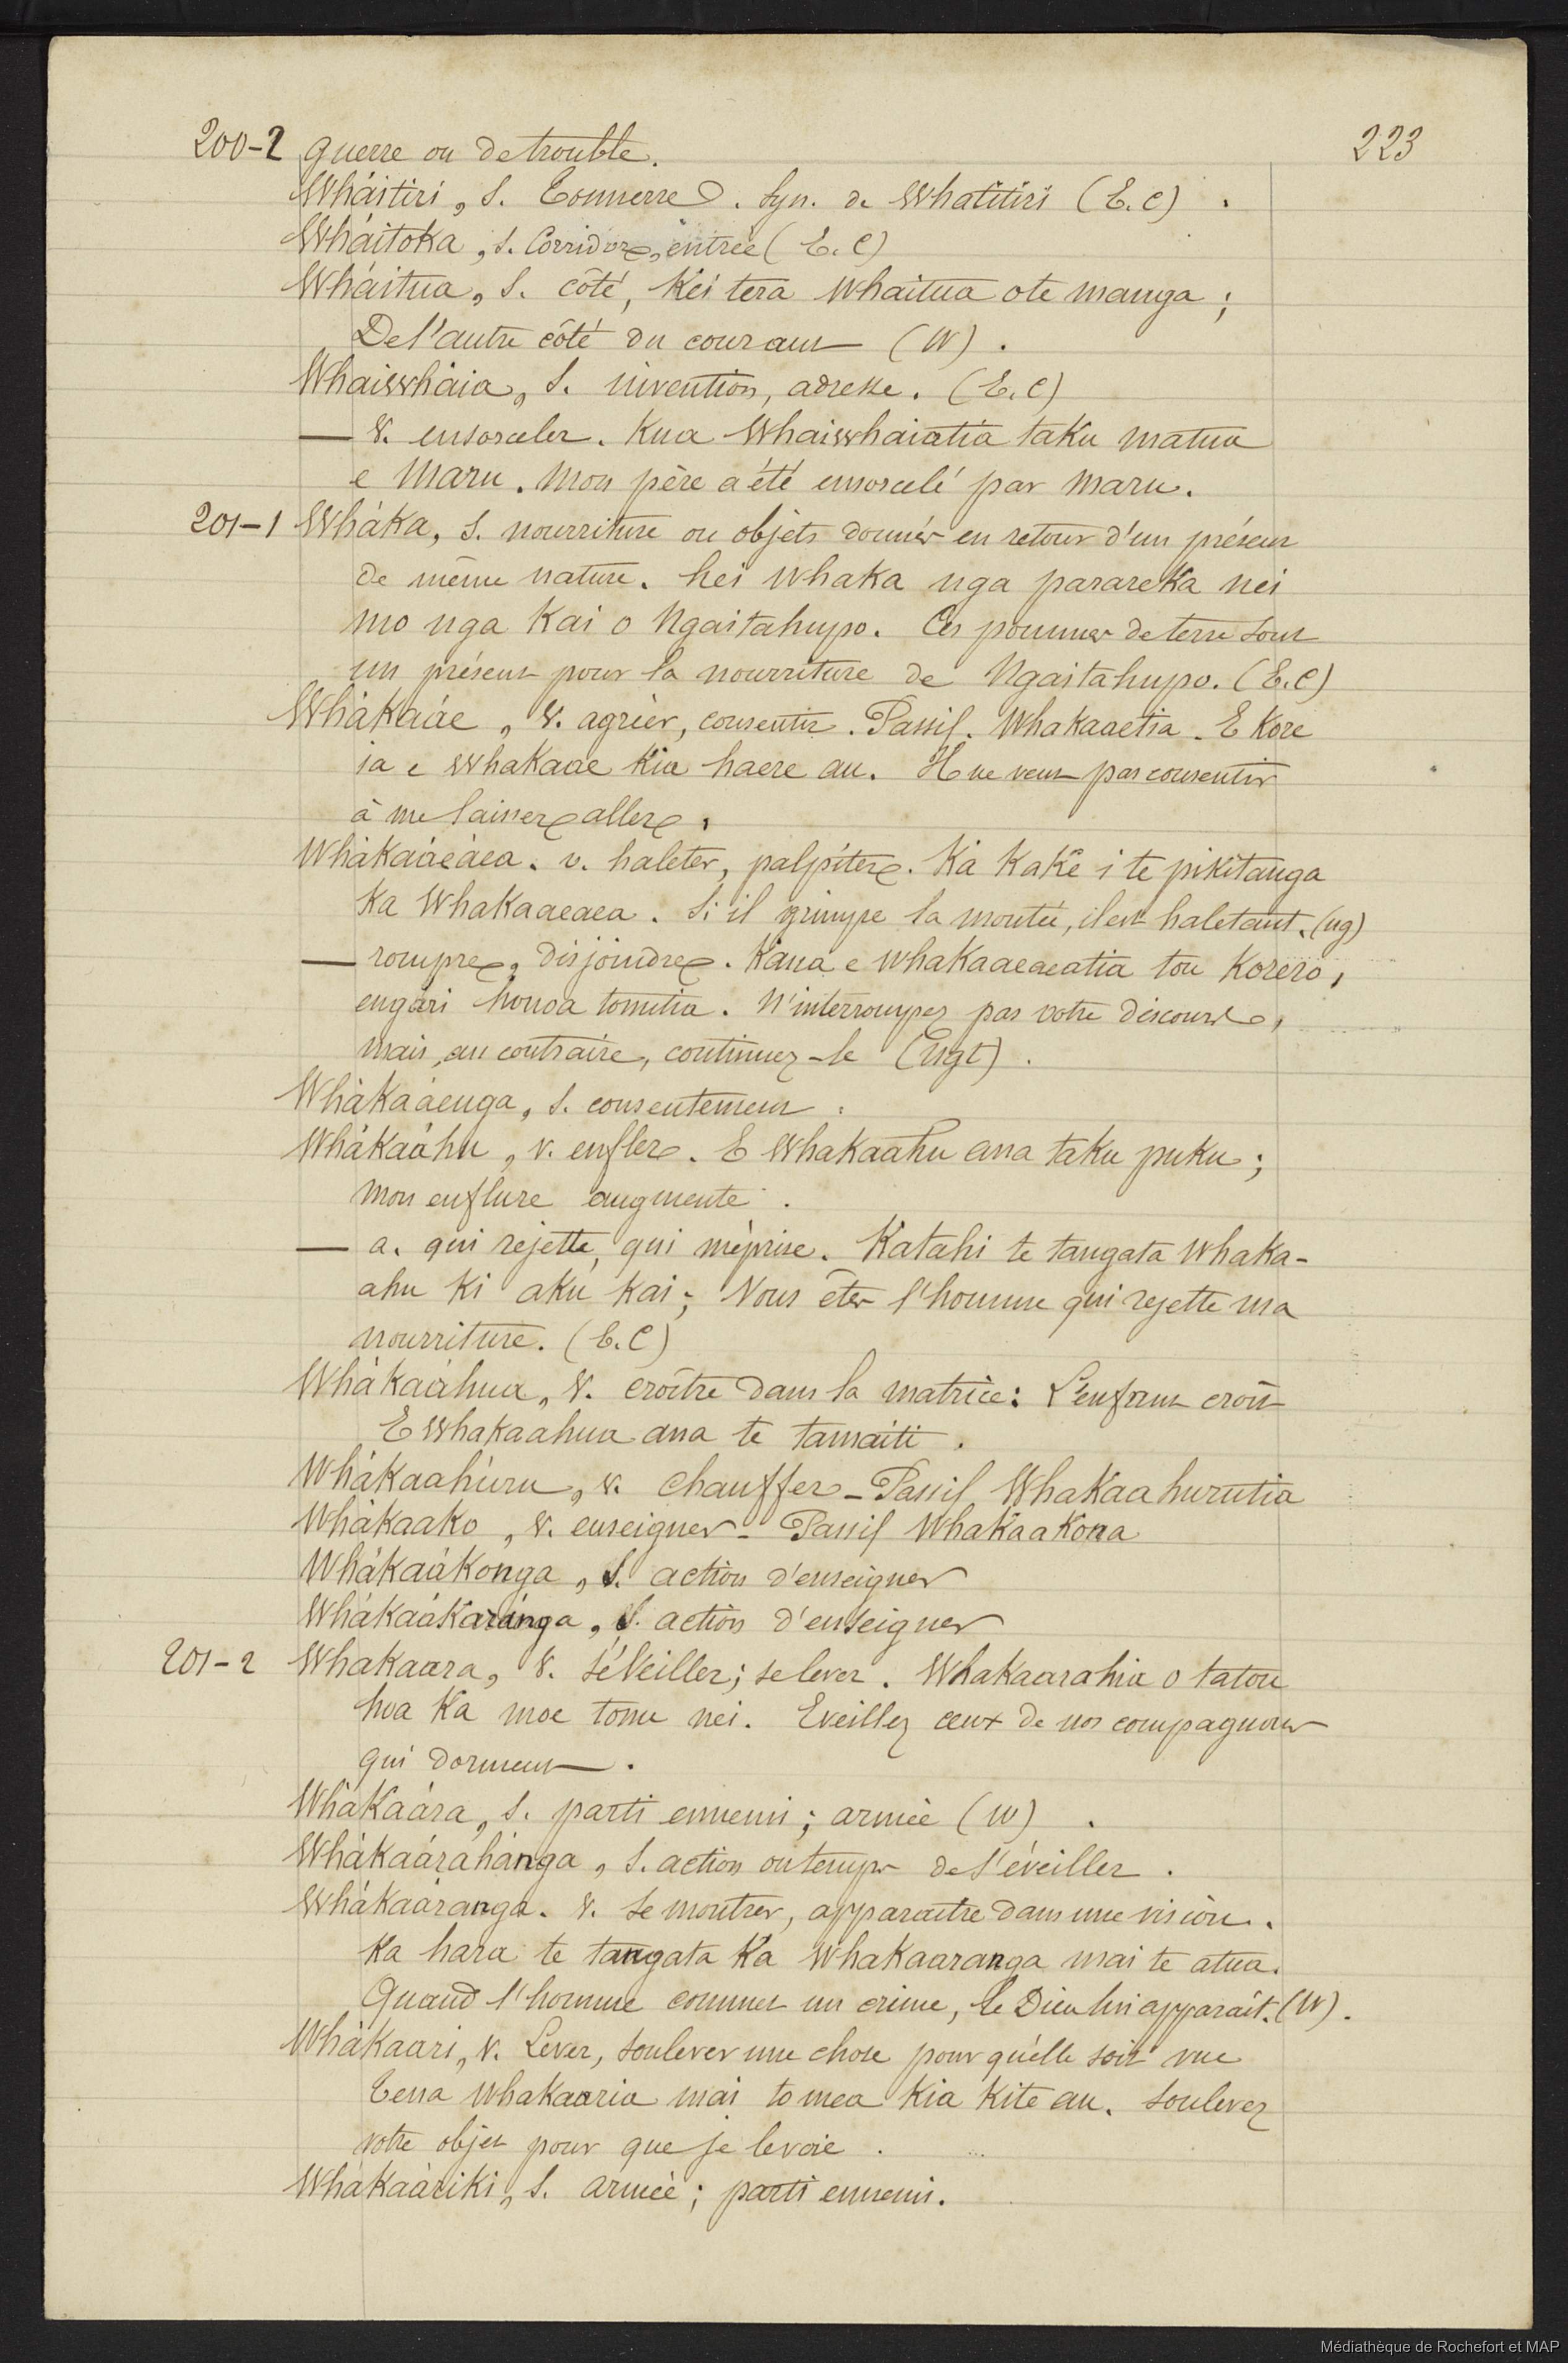 223
200-2 guerre ou de trouble.
Whâitiri, s. Tonnerre. Syn. de Whatitiri (E.C) .
Whâitoka, s. Corridor, entrée (E.C)
Whâitua, s. côté, Kei tera whaitua o te manga ;
De l'autre côté du courant (W) .
Whaiwhàia, s. invention, adresse. (E.C)
— V. ensorceler. Kua Whaiwhaiatia taku matua
e Maru. Mon père a été ensorcelé par Maru.
201-1 Whàka, s. nourriture ou objets donnés en retour d'un présent
de même nature. hei whaka nga parareka nei
mo nga Kai o Ngaitahupo. Ces pommes de terre sont
un présent pour la nourriture de Ngaitahupo. (E.C)
Whàkaàe, V. agréer, consentir. Passif. Whakaaetia. E Kore
ia e whakaae Kia haere au. Il ne veut pas consentir
à me laisser aller.
Whàkaàeàea. v. haleter, palpiter. Ka Kake i te pikitanga
Ka Whakaaeaea. Si il grimpe la montée, il est haletant. (ng)
— rompre, disjoindre. Kaua e whakaaeaeatia tou Korero,
engari honoa tonutia. N'interrompez pas votre discours,
mais, au contraire, continuez-le (Ngt) .
Whàkaàenga, s. consentement .
Whàkaàhu, v. enfler. E Whakaahu ana taku puku ;
mon enflure augmente .
— a. qui rejette, qui méprise. Katahi te tangata Whaka-
ahu Ki aku Kai ; Vous êtes l'homme qui rejette ma
nourriture. (E.C)
Whàkaàhua, V. croître dans la matrice : L'enfant croît
E Whakaahua ana te tamaiti .
Whàkaahùru, v. chauffer - Passif Whakaahurutia
Whàkaako, V. enseigner - Passif Whakaakona
Whàkaàkonga, s. action d'enseigner
Whàkaàkarànga, s. action d'enseigner
201-2 Whakaara, V. s'éveiller ; se lever. Whakaarahia o tatou
hoa Ka moe tonu nei. Eveillez ceux de nos compagnons
qui dorment .
Whàkaàra, s. parti ennemi ; armée (W) .
Whàkaàrahànga, s. action ou temps de s'éveiller .
Whàkaàranga. V. se montrer, apparaitre dans une vision.
Ka hara te tangata Ka Whakaaranga mai te atua.
Quand l'homme commet un crime, le Dieu lui apparaît. (W) .
Whàkaari, V. Lever, soulever une chose pour qu'elle soit vue
Tena whakaaria mai to mea Kia Kite au. Soulevez
votre objet pour que je le voie .
Whàkaàriki, s. armée ; parti ennemi.
Médiathèque de Rochefort et MAP